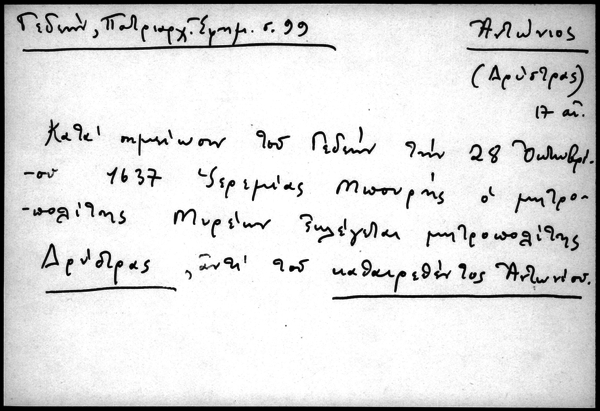 Γεδεών, Πατριαρχ. Ἐφημ. σ. 99
Ἀντώνιος
(Δρύστρας)
17 αἰ.
Κατά σημείωσιν τοῦ Γεδεών τήν 28 Ὀκτωβρί-
-ου 1637 Ἱερεμίας Μπουρής ὁ μητρο-
-πολίτης Μυρέων ἐκλέγεται μητροπολίτης
Δρύστρας, ἀντί τοῦ καθαιρεθέντος Ἀντωνίου.